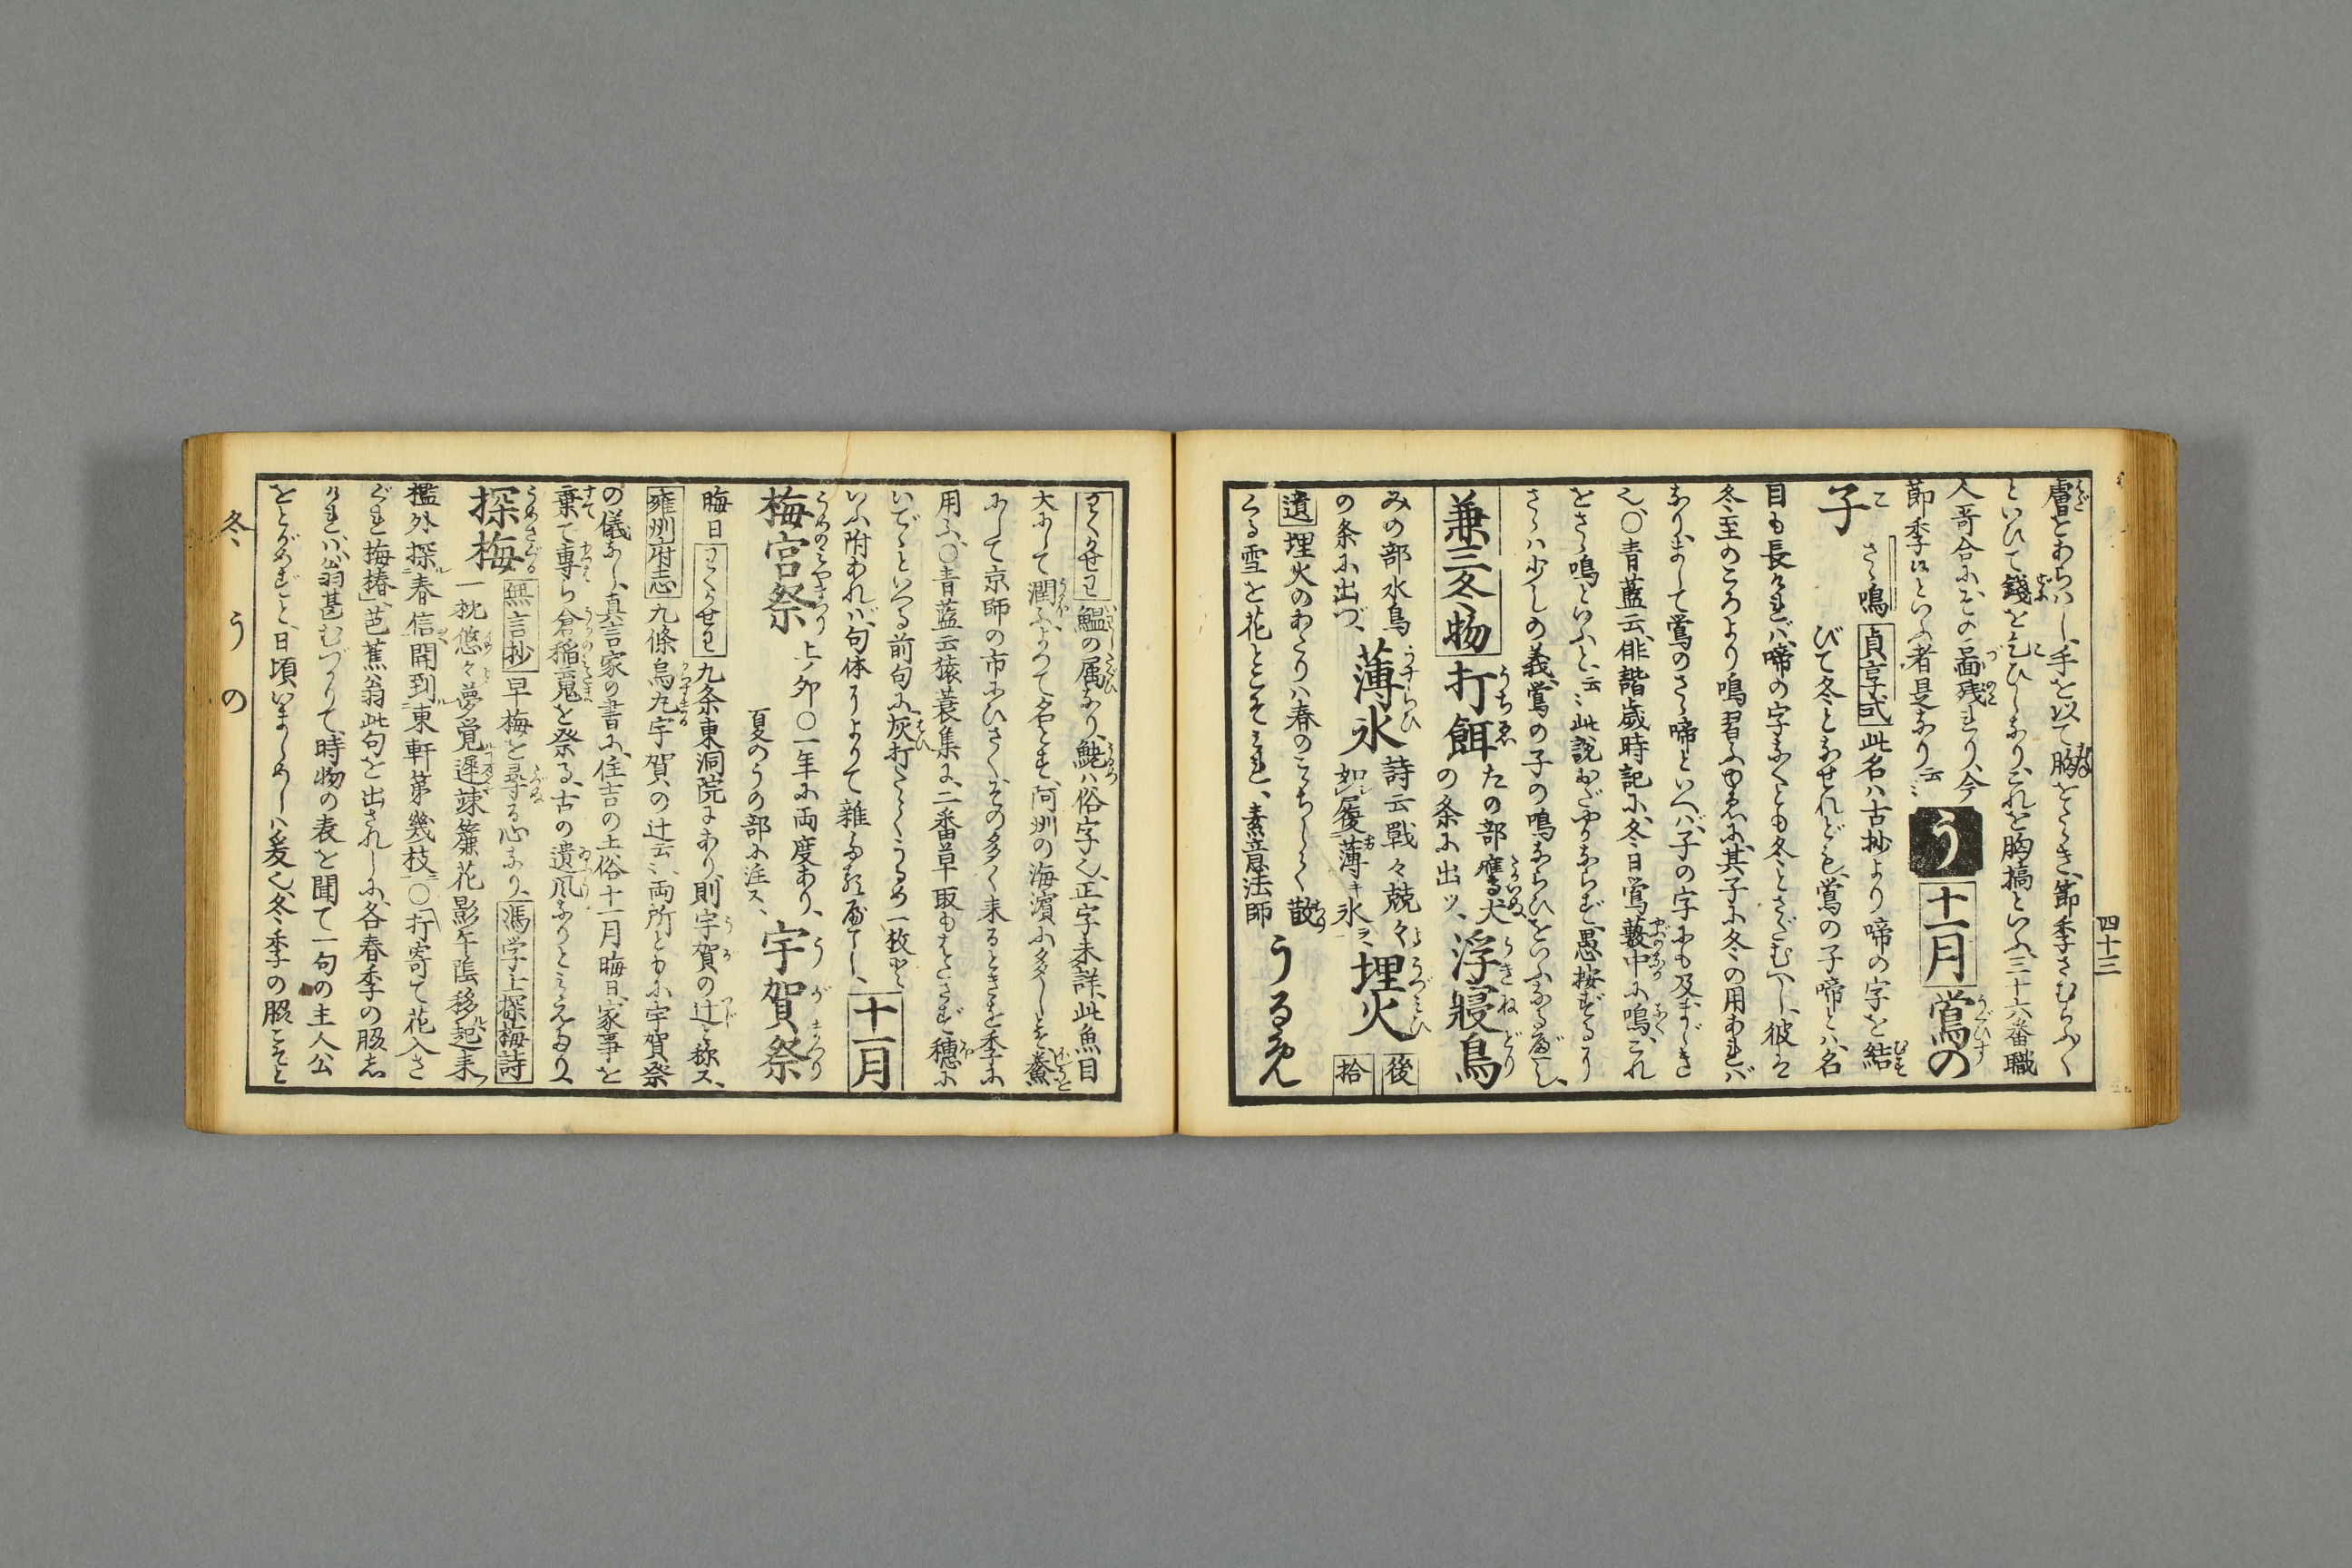 四十三
膚をあらハし、手を以て胸をたゝき、節季さむらふ〱
といひて錢を乞ひしなり、これを胸擂といふ、三十六番職
人哥合にその画残れり、今
節季候といふ者是なり云〻
う
十一月
鶯の
子
さゝ鳴
貞享式
此名ハ古抄より啼の字を結
びて冬となせれども、鶯の子啼とハ、名
目も長ければ、啼の字なくとも冬とさだむべし、彼は
冬至のころより鳴習ふゆゑに、其子に冬の用あれば
なり、まして鶯のさゝ啼といへバ、子の字にも及まじき
也、〇青藍云、俳諧歳時記に、冬日鶯藪中に鳴、これ
をさゝ鳴といふと云〻、此説おだやかならず、愚按ずるに
さゝハ少しの義、鶯の子の鳴ならひをいふなるべし、
兼三冬物
打餌
たの部鷹犬
の条に出ッ、
浮寢鳥
みの部水鳥
の条に出づ、
薄氷
詩云戰々兢々
如履薄氷
埋火
後
拾
遺
埋火のあたりハ春のこゝちして散
くる雪を花とこそミれ、素意法師
うるめ
わくかせわ
鰮の属なり、鮱ハ俗字也、正字未詳、此魚目
大にして潤ふ、よつて名とす、阿州の海濱に多しとぞ、鱻
にして京師の市にひさく、その多く来るときを季に
用ふ、〇青藍云猿蓑集に、二番草取もはたさず穂に
いでゝといへる前句に灰打たゝくうるめ一枚と
いふ附あれバ、句体によりて雜なるべし、
十一月
梅宮祭
上ノ夘〇一年に両度あり、
夏のうの部に注ス、
宇賀祭
晦日
わくかせわ
九条東洞院にあり、則宇賀の辻と称ス、
雍州府志
九條烏丸宇賀の辻云〻、両所ともに宇賀祭
の儀なし、真言家の書に、住吉の土俗十一月晦日、家事を
棄て專ら倉稲䰠を祭る、古の遺風なりとミえたり
探梅
無言抄
早梅を尋る心なり、
馮学士探梅詩
一枕悠々夢覚遲疎簾花影午陰移起来
檻外探春信開到東軒第幾枝〇打寄て花入さ
ぐれ梅椿、芭蕉翁此句を出されしに、各春季の脇お
ければ、翁甚むづかりて、時物の表を聞て一句の主人公
をとがめずと、日頃いましめしハ爰也、冬季の脇こそと
冬
う
の